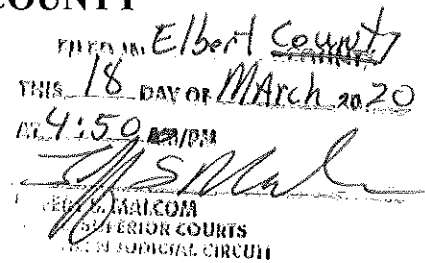 COUNTY
FILED IN Elbert County
THIS 18 DAY OF MArch 2020
AT 4:50 AM/PM
MALCOM
SUPERIOR COURTS
JUDICIAL CIRCUIT